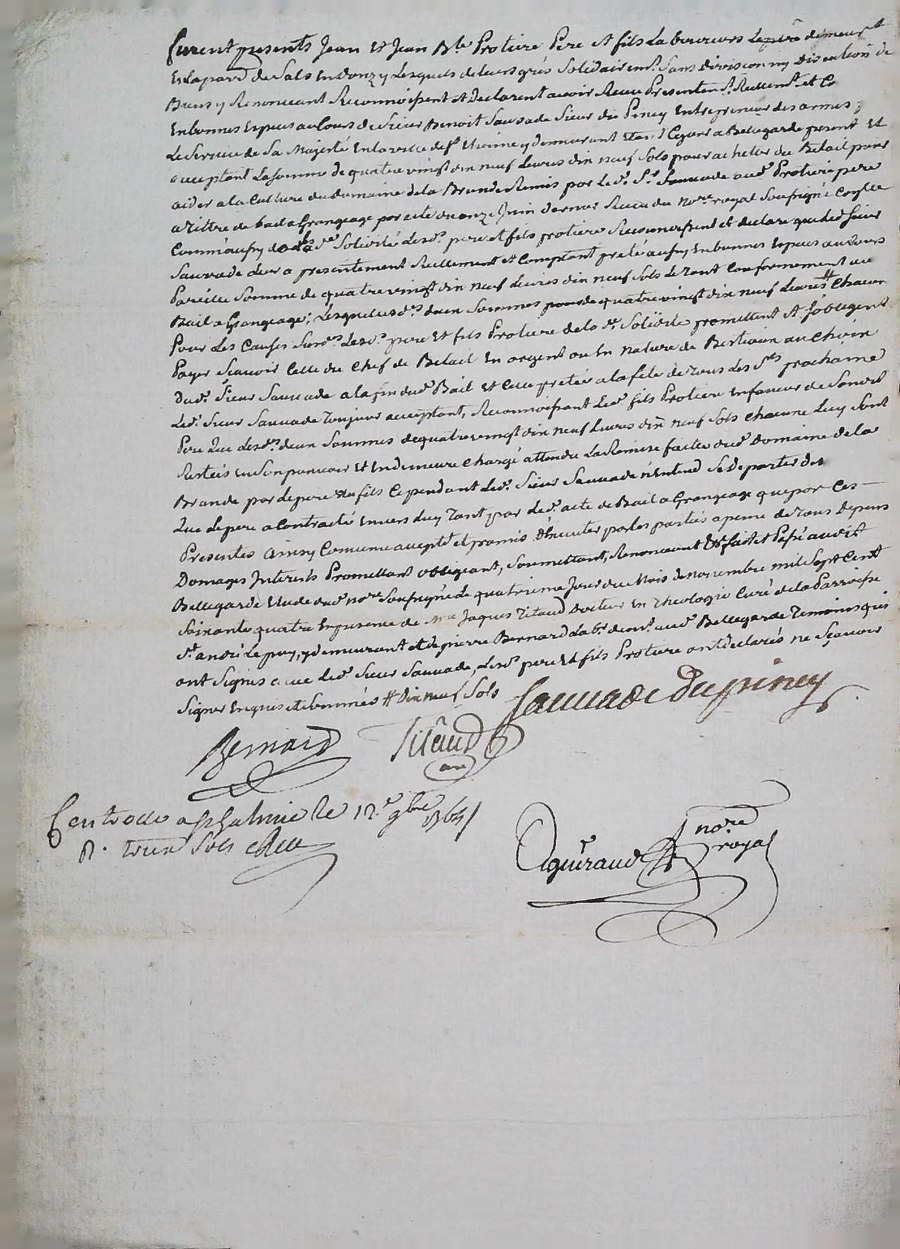 furent presents Jean et Jean Bte Protiere Pere et fils Laboureurs Le père demeurt
En la parr. de Salt En donzy Lesquels de leurs grés Solidairemt. Sans division ny discution de
Biens y Renonçant Reconnoissent et declarent avoir Receu Presentemt. Reellemt. et Co
En bonnes Espes au Cours du Sieur Benoit Sauvade Sieur du Piney Entrepreneur des armes
Le Service de Sa Majesté En la ville de St. Etienne y demeurant Etant Ce jour a Bellegarde present et
acceptant La somme de quatre vingt dix neuf Livres dix neuf Sols pour acheter du Betail pour
aider a la Culture du domaine de la Brande Remis par Led. Sr. Sauvade aud. Protiere pere
a Tittre de bail a Grangeage par acte du onze Juin dernier Receu du nore. royal Soussigné Et
Comme aussy de lad. de Solidité Lesd. pere et fils protiere Reconnoissent et declare que led Sieur
Sauvade Leur a presentement Reellement et Comptant preté aussy En bonnes Espes au Cours
Pareille Somme de quatre vingt dix neuf Livres dix neuf Sols Le tout Conformement au
Bail a Grangeage; Lesquelles d. deux Sommes de quatre vingt dix neuf Livres # Chacune
Pour Les Causes Susd. Lesd. pere et fils Protiere de lad. Solidité promettent et s'obligent
Payer Scavoir Celle du Chef de Betail En argent ou En nature de Bestiaux au Choix
dud. Sieur Sauvade a la fin dud. Bail et Celle pretée a la fête de Tous Les Sts prochaine
Led. Sieur Sauvade Toujour acceptant, Reconnoissant Led. fils Protiere En faveur de Son
Pere que Lesd. deux Sommes de quatre vingt dix neuf Livres dix neuf Sols Chacune Luy Sont
Restées En Son pouvoir et En demeure Chargé attendu La Remise faite dud. Domaine de la
Brande par le pere au fils Cependant Led. Sieur Sauvade n'entend Se departer des
Que le pere a Contracté Envers Luy Tant par Led. acte de Bail a Grangeage que par Ces
Presentes ainsy Convenu accepté et promis d'Executer par les parties a peine de Tous depens
Domages Interets Promettant obligeant, Soumettant, Renoncant & fait et Passé audit
Bellegarde Etude dud. nore. Soussigné Le quatrieme Jour du Mois de novembre mil Sept Cent
Soixante quatre En presence de Mre Jaques Titaud docteur En Theologie Curé de la Parroisse
St. andré le puy, y demeurant et de pierre Bernard Labr. demt. aud. Bellegarde Temoins qui
ont Signés avec Led. Sieur Sauvade, Lesd. pere et fils Protiere ont declarés ne Scavoir
Signer Enquis et Sommés # Dix neuf Sols
Sauvade Dupiney
Bernard Titaud
Controllé a St Galmier le 12.e 9bre 1764
R. treize Sols
nore
royal